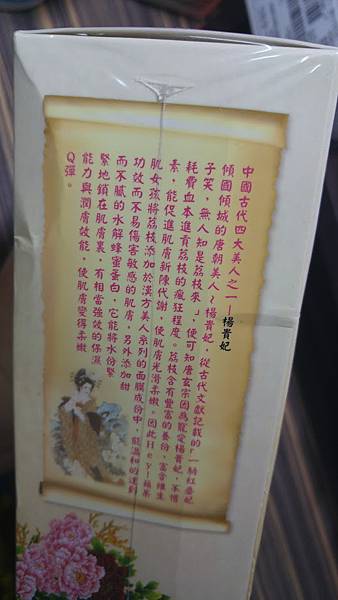 中國古代四大美人之一—楊貴妃
傾國傾城的唐朝美人~楊貴妃，從古代文獻記載的「一騎紅塵妃
子笑，無人知是荔枝來」，便可知唐玄宗因為寵愛楊貴妃，不惜
耗費血本進貢荔枝的瘋狂程度。荔枝含有豐富的養份，富含維生
素，能促進肌膚新陳代謝，使肌膚光滑柔嫩。因此Hey!蘋果
肌女孩將荔枝添加於漢方美人系列的面膜成份中，能溫和的達到
功效而不易傷害敏感的肌膚，另外添加甜
而不膩的水解蜂蜜蛋白，它能將水份緊
緊地鎖在肌膚裏，有相當強效的保濕
能力與潤膚效能，使肌膚變得柔嫩
Q彈。